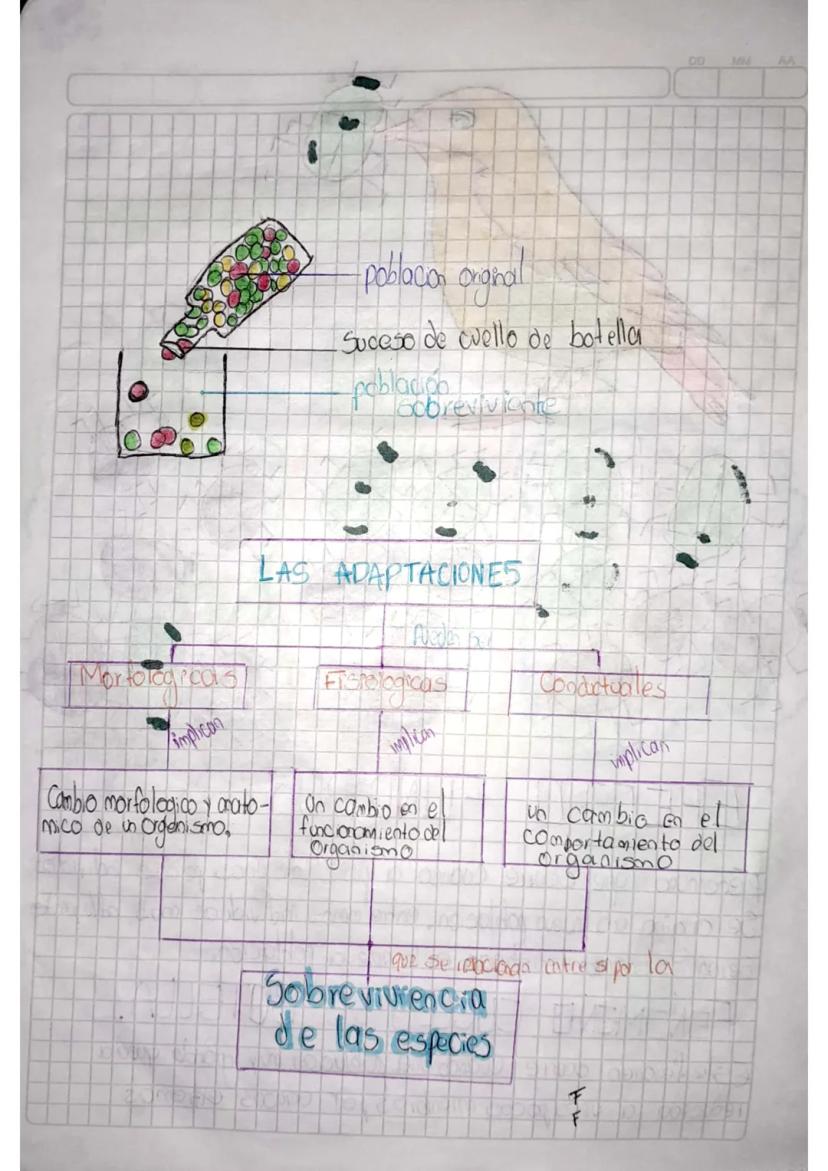 DD MM AA
poblacon original
Suceso de cuello de botella
población
sobreviviente
LAS ADAPTACIONES
Pueden ser
Morfologicas
Fisiologicas
Conductuales
implican
implican
implican
Cambio morfologico y anato-
mico de un organismo,
Un cambio en el
funcionamiento del
Organismo
un cambio en el
comportamiento del
organismo
que se relaciona entre si por la
Sobrevivencia
de las especies
F
F